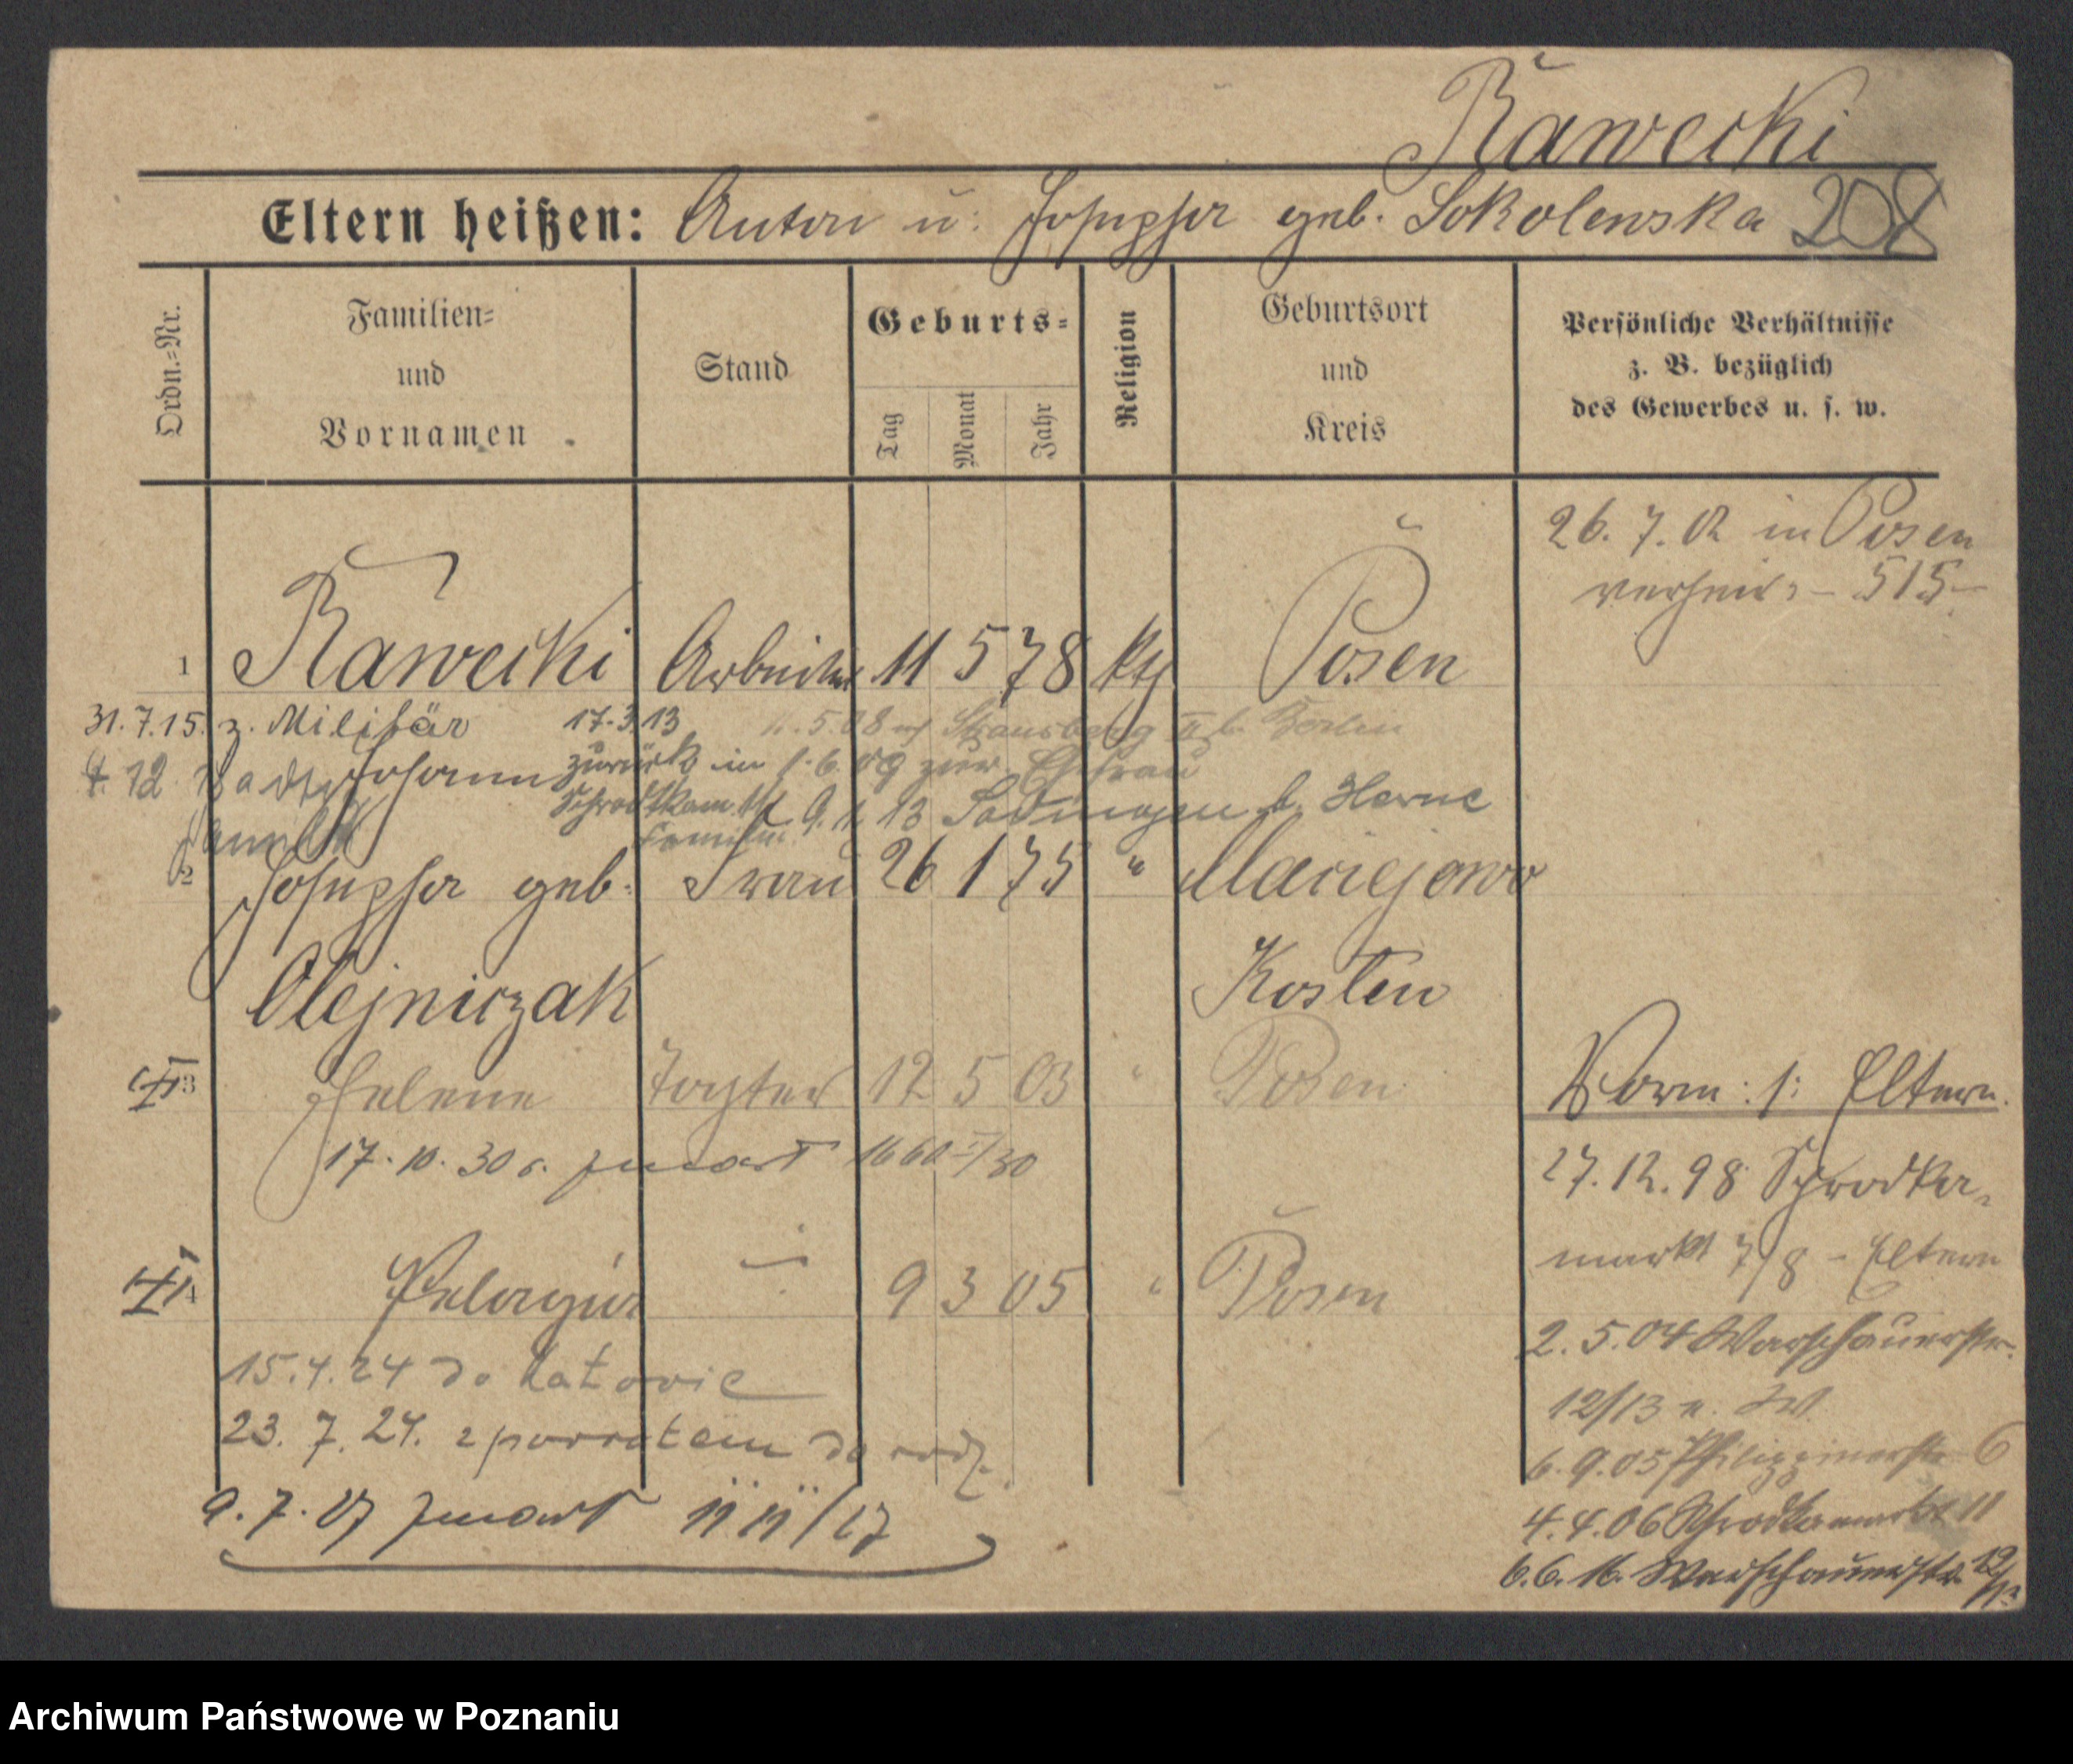 Rawecki
Eltern heißen: Anton u. Josepha geb. Sokolenska 208
Ordn.-Nr.
Familien- und Vornamen
Stand
Geburts-
Tag Monat Jahr
Religion
Geburtsort und Kreis
Persönliche Verhältnisse
z. B. bezüglich
des Gewerbes u. s. w.
26. 7. 02 in Posen
verheir. - 515 -
1 Rawecki Arbeiter 11 5 78 kth Posen
31.7.15. z. Militär 17.3.13 5.08 Strausberg b. Berlin
zurück 1.6.09 zur Ehefrau
4. 12 Johann
9. 11 13 Sodingen b. Herne
2 Josepha geb. Frau 26 1 75 " Maciejewo
Olejniczak Kosten
3 Helene Tochter 12 5 03 " Posen
17. 10. 30 r. zmarł /30
4 Pelagia 9 3 05 " Posen
15.4.24 do Katowic
23. 7. 24. z powrotem do rodz.
9. 7. 07 zmarł
Vorm: s: Eltern.
27.12.98 Schrodka-
markt 7/8 - Eltern
2. 5. 04 Warschauerstr.
12/13
6. 9. 05 Philippinerstr 6
4. 4. 06 Schrodkamarkt 11
6. 6. 16. Warschauerstr.
Archiwum Państwowe w Poznaniu